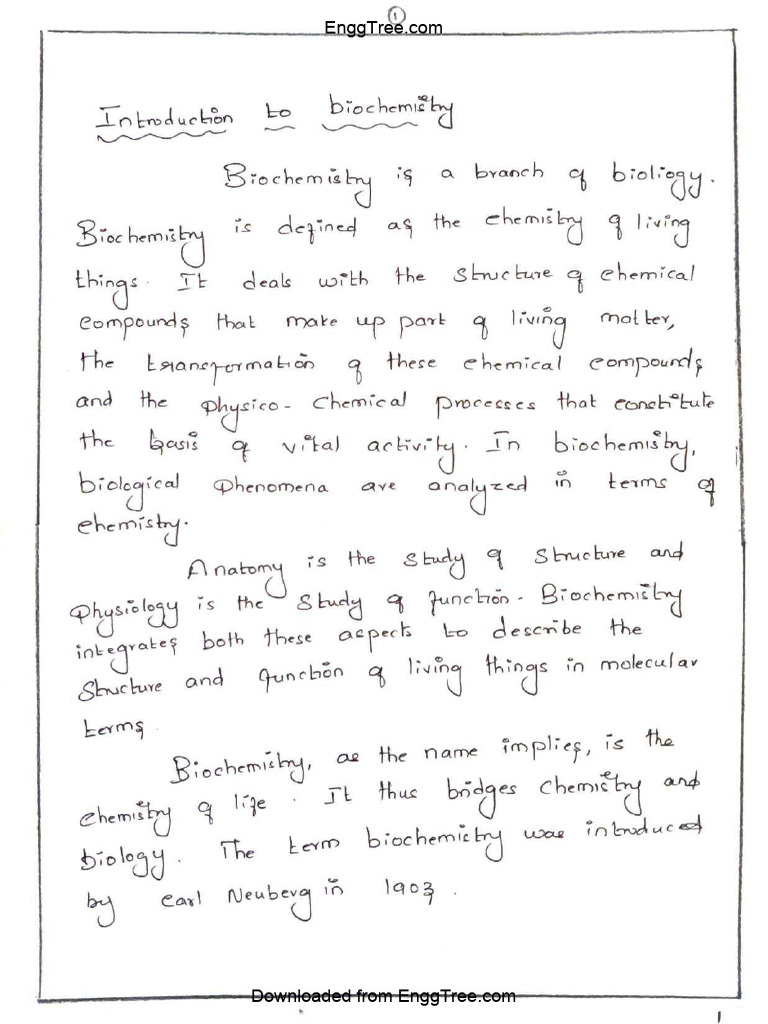 1
EnggTree.com
Introduction to biochemistry
Biochemistry is a branch of biology.
Biochemistry is defined as the chemistry of living
things. It deals with the structure of chemical
compounds that make up part of living matter,
the transformation of these chemical compounds
and the physico-chemical processes that constitute
the basis of vital activity. In biochemistry,
biological phenomena are analyzed in terms of
chemistry.
Anatomy is the study of structure and
Physiology is the study of function. Biochemistry
integrates both these aspects to describe the
structure and function of living things in molecular
terms.
Biochemistry, as the name implies, is the
chemistry of life. It thus bridges chemistry and
biology. The term biochemistry was introduced
by Carl Neuberg in 1903.
Downloaded from EnggTree.com
1